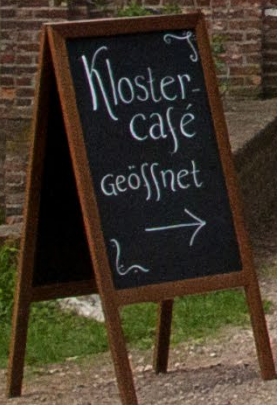 Kloster-
café
geöffnet